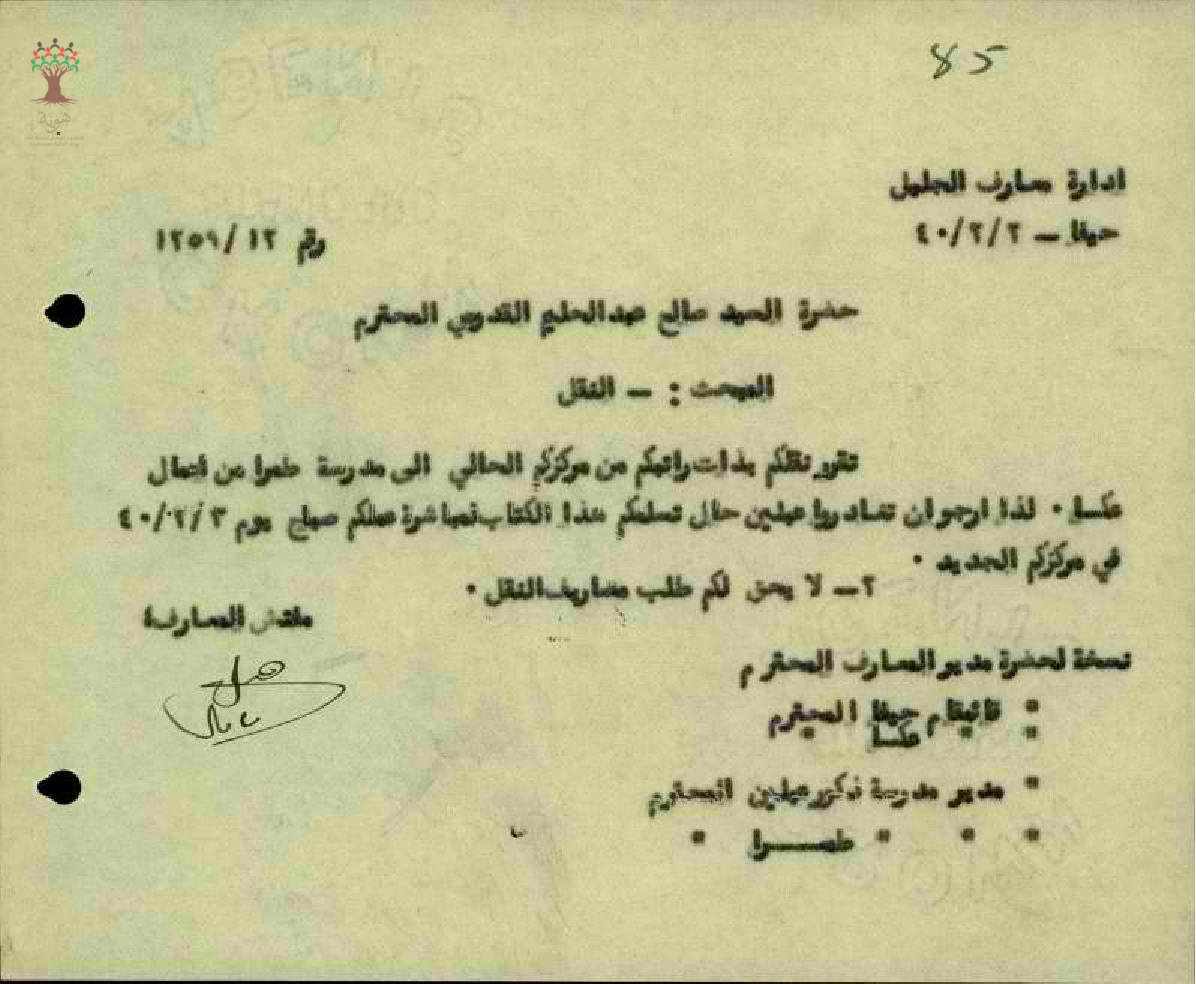 85
هوية
ادارة معارف الجليل
حيفا – ٤٠/٢/٢
رقم ١٢٥٩/١٢
حضرة السيد صالح عبدالحليم القدومي المحترم
المبحث : – النقل
تقرر نقلكم بذات راتبكم من مركزكم الحالي الى مدرسة طمرا من اعمال
عكــا ٠ لذا ارجو ان تغادروا عبلين حال تسلمكم هذا الكتاب لمباشرة عملكم صباح يوم ٤٠/٢/٣
في مركزكم الجديد ٠
٢– لا يحق لكم طلب مصاريف النقل ٠
مفتش المعارف
نسخة لحضرة مدير المعارف المحترم
" قائمقام حيفا المحترم
" " عكــا "
" مدير مدرسة ذكور عبلين المحترم
" " " طمــــرا "